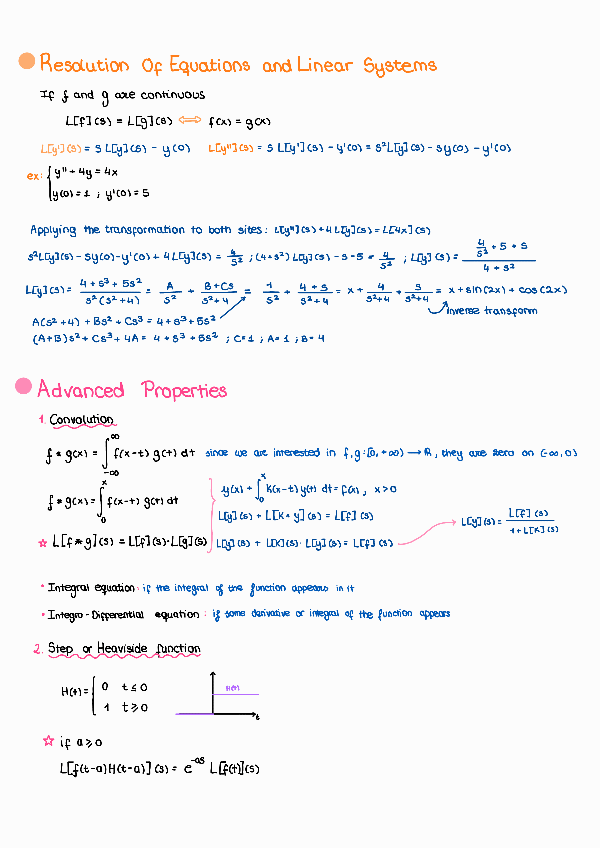 Resolution Of Equations and Linear Systems
If f and g are continuous
L[f](s) = L[g](s) ⟺ f(x) = g(x)
L[y'](s) = s L[y](s) - y(0) L[y''](s) = s L[y'](s) - y'(0) = s²L[y](s) - sy(0) - y'(0)
ex: { y'' + 4y = 4x
y(0) = 1 ; y'(0) = 5
Applying the transformation to both sites: L[y''](s) + 4L[y](s) = L[4x](s)
s²L[y](s) - sy(0) - y'(0) + 4L[y](s) = 4/s² ; (4+s²) L[y](s) - s - 5 = 4/s² ; L[y](s) = (4/s² + 5 + s)/(4 + s²)
L[y](s) = (4 + s³ + 5s²)/(s²(s²+4)) = A/s² + (B+Cs)/(s²+4) = 1/s² + (4+s)/(s²+4) = x + 4/(s²+4) + s/(s²+4) = x + sin(2x) + cos(2x)
inverse transform
A(s²+4) + Bs² + Cs³ = 4+s³+5s²
(A+B)s² + Cs³ + 4A = 4 + s³ + 5s² ; C=1 ; A=1 ; B=4
Advanced Properties
1. Convolution
f * g(x) = ∫_{-∞}^{∞} f(x-t) g(t) dt since we are interested in f,g:[0,+∞) → R, they are zero on (-∞,0)
f * g(x) = ∫_0^x f(x-t) g(t) dt
☆ L[f * g](s) = L[f](s)·L[g](s)
y(x) + ∫_0^x K(x-t)y(t) dt = f(x) , x>0
L[y](s) + L[K * y](s) = L[f](s)
L[y](s) + L[K](s)· L[y](s) = L[f](s)
L[y](s) = L[f](s)/(1+L[K](s))
• Integral equation: if the integral of the function appears in it
• Integro-Differential equation : if some derivative or integral of the function appears
2. Step or Heaviside function
H(t) = { 0 t ≤ 0
1 t ≥ 0
H(t)
t
☆ if a ≥ 0
L[f(t-a)H(t-a)](s) = e^{-as} L[f(t)](s)